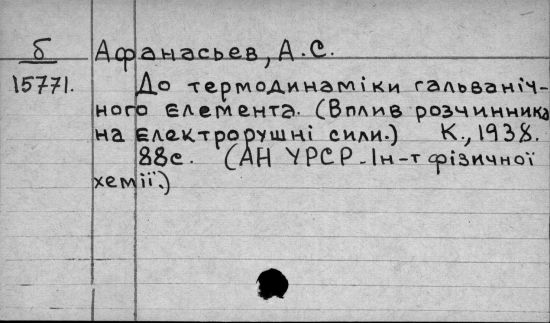 б Афанасьев, А.С.
15771. До термодинаміки гальваніч-
ного елемента. (Вплив розчинника
на електрорушні сили.) К., 1938.
88с. (АН УРСР-Ін-т фізичної
хемії.)